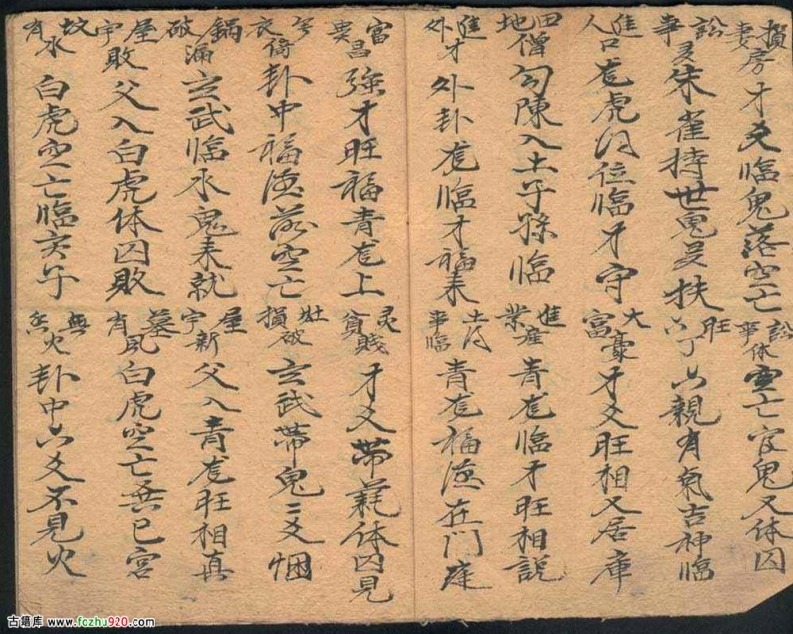 損妻房 才爻临鬼落空亡 訟事休 空亡官鬼又休囚
訟事灵 朱雀持世鬼爻扶 六丁旺 六親有氣吉神临
進人口 龙虎同位临才守 大富豪 才爻旺相又居庫
田地僧 勾陳入土子孫临 進産業 青龙临才旺相説
進外才 外卦龙临才福来 青龙福德在门庭
富貴昌 強才旺福青龙上 貧賤 才爻帶耗休囚見
卦中福德落空亡 灶損破 玄武帶鬼二爻
鍋破漏 玄武临水鬼来就 屋宇新 父入青龙旺相真
屋宇敗 父入白虎休囚敗 墓有風 白虎空亡巳宫
坟有水 白虎空亡临亥子 無火 卦中六爻不見火
古籍库 www.fczhj920.com